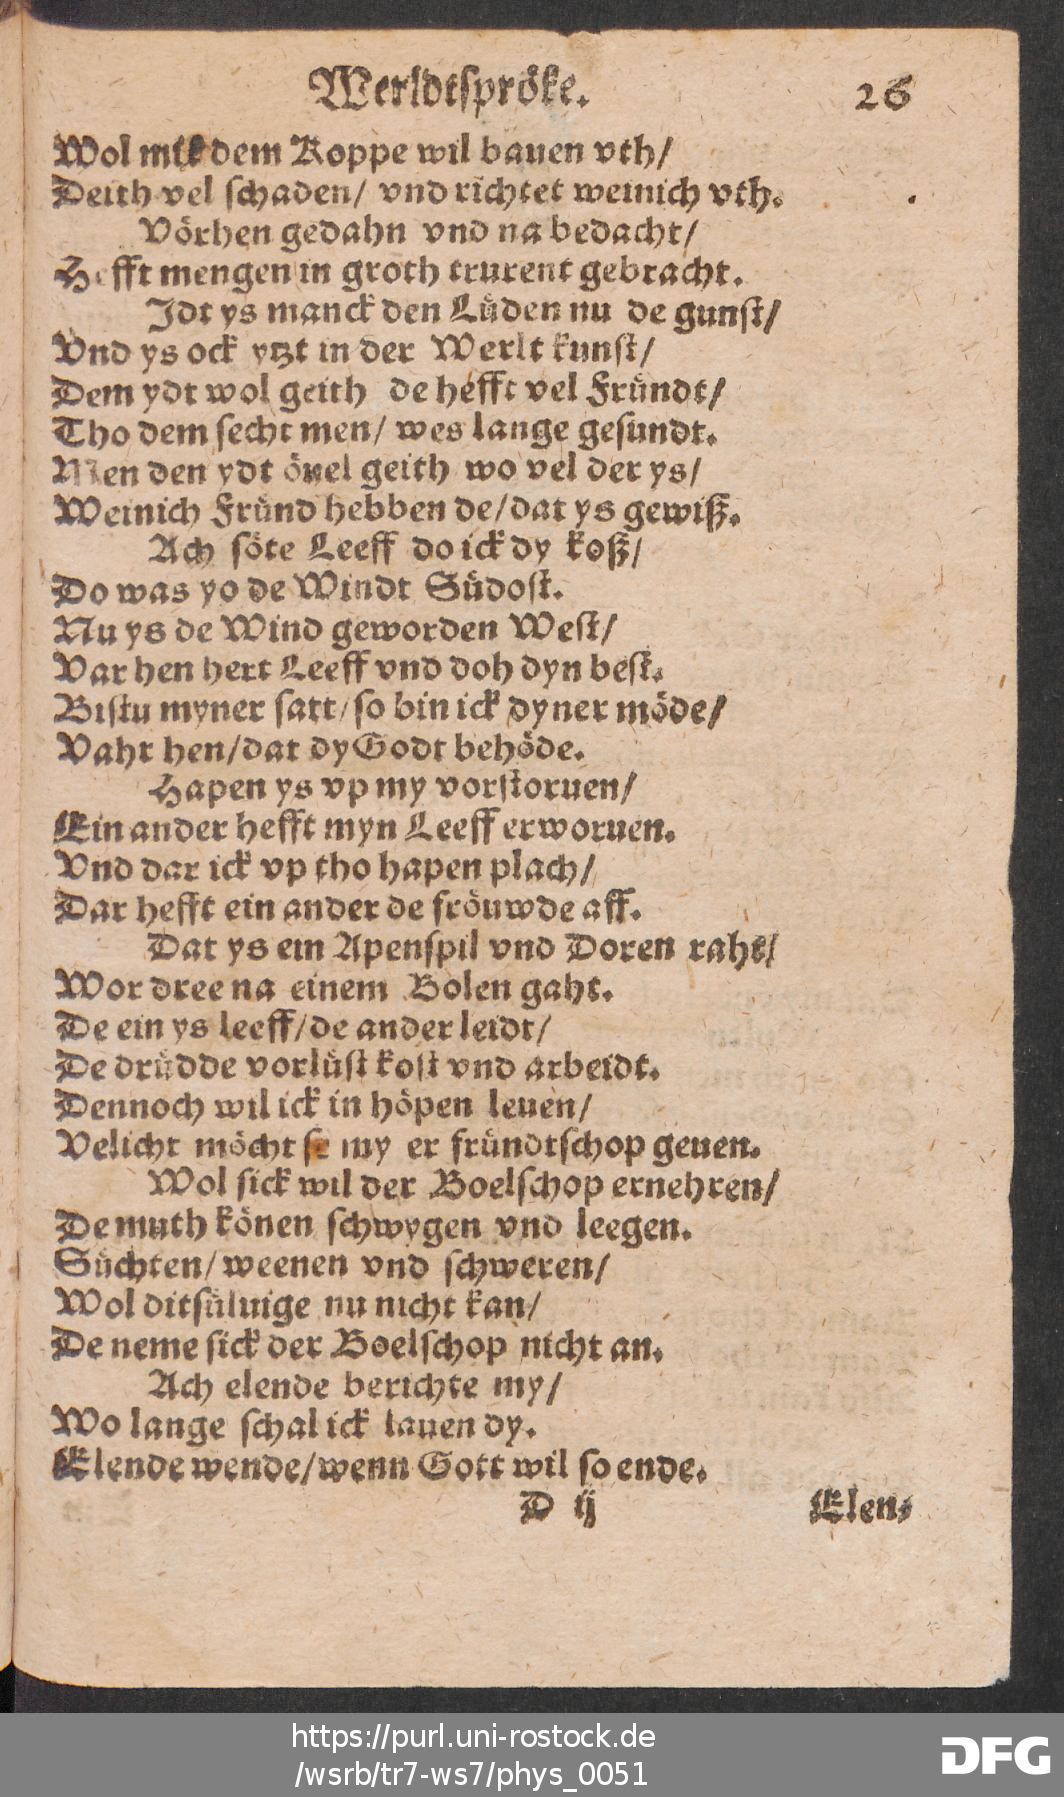 Werldtspröke. 26
Wol mit dem Koppe wil bauen vth/
Deith vel schaden/ vnd richtet weinich vth.
Vörhen gedahn vnd na bedacht/
Hefft mengen in groth trurent gebracht.
Idt ys manck den Lüden nu de gunst/
Vnd ys ock ytzt in der Werlt kunst/
Dem ydt wol geith de hefft vel Fründt/
Tho dem secht men/ wes lange gesundt.
Men den ydt övel geith wo vel der ys/
Weinich Fründ hebben de/dat ys gewiß.
Ach söte Leeff do ick dy koß/
Do was yo de Windt Südost.
Nu ys de Wind geworden West/
Var hen hert Leeff vnd doh dyn best.
Bistu myner satt/so bin ick dyner möde/
Vahr hen/dat dy Godt behöde.
Hapen ys vp my vorstoruen/
Ein ander hefft myn Leeff erworuen.
Vnd dar ick vp tho hapen plach/
Dar hefft ein ander de fröuwde aff.
Dat ys ein Apenspil vnd Doren raht/
Wor dree na einem Bolen gaht.
De ein ys leeff/de ander leidt/
De drüdde vorlüst kost vnd arbeidt.
Dennoch wil ick in höpen leuen/
Velicht möcht se my er fründtschop geuen.
Wol sick wil der Boelschop ernehren/
De muth könen schwygen vnd leegen.
Süchten/ weenen vnd schweren/
Wol ditsüluige nu nicht kan/
De neme sick der Boelschop nicht an.
Ach elende berichte my/
Wo lange schal ick lauen dy.
Elende wende/wenn Gott wil so ende.
D ij Elen-
https://purl.uni-rostock.de
/wsrb/tr7-ws7/phys_0051
DFG